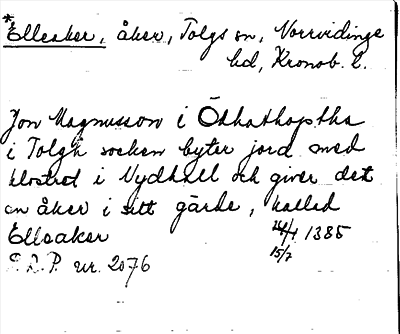 *Elleaker, åker, Tolgs sn, Norrvidinge
hd, Kronob. l.
Jon Magnusson i Öthathoptha
i Tolgh socken byter jord med
klostret i Nydhall och giver det
en åker i sitt gärde, kallad
Elleaker 1385
15/7
S.R.P. nr. 2076